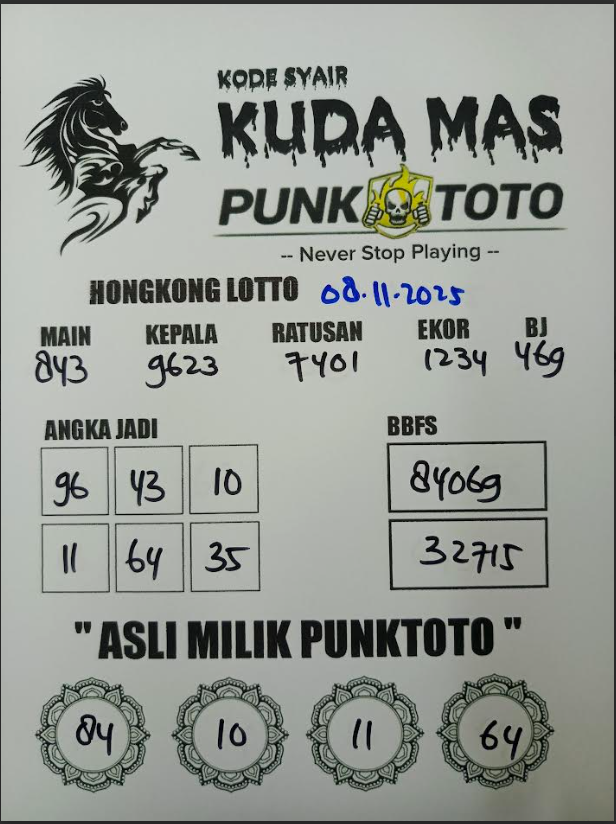 KODE SYAIR
KUDA MAS
PUNK TOTO
-- Never Stop Playing --
HONGKONG LOTTO 08.11.2025
MAIN KEPALA RATUSAN EKOR BJ
843 9623 7401 1234 469
ANGKA JADI BBFS
96 43 10 84069
11 64 35 32715
" ASLI MILIK PUNKTOTO "
84 10 11 64